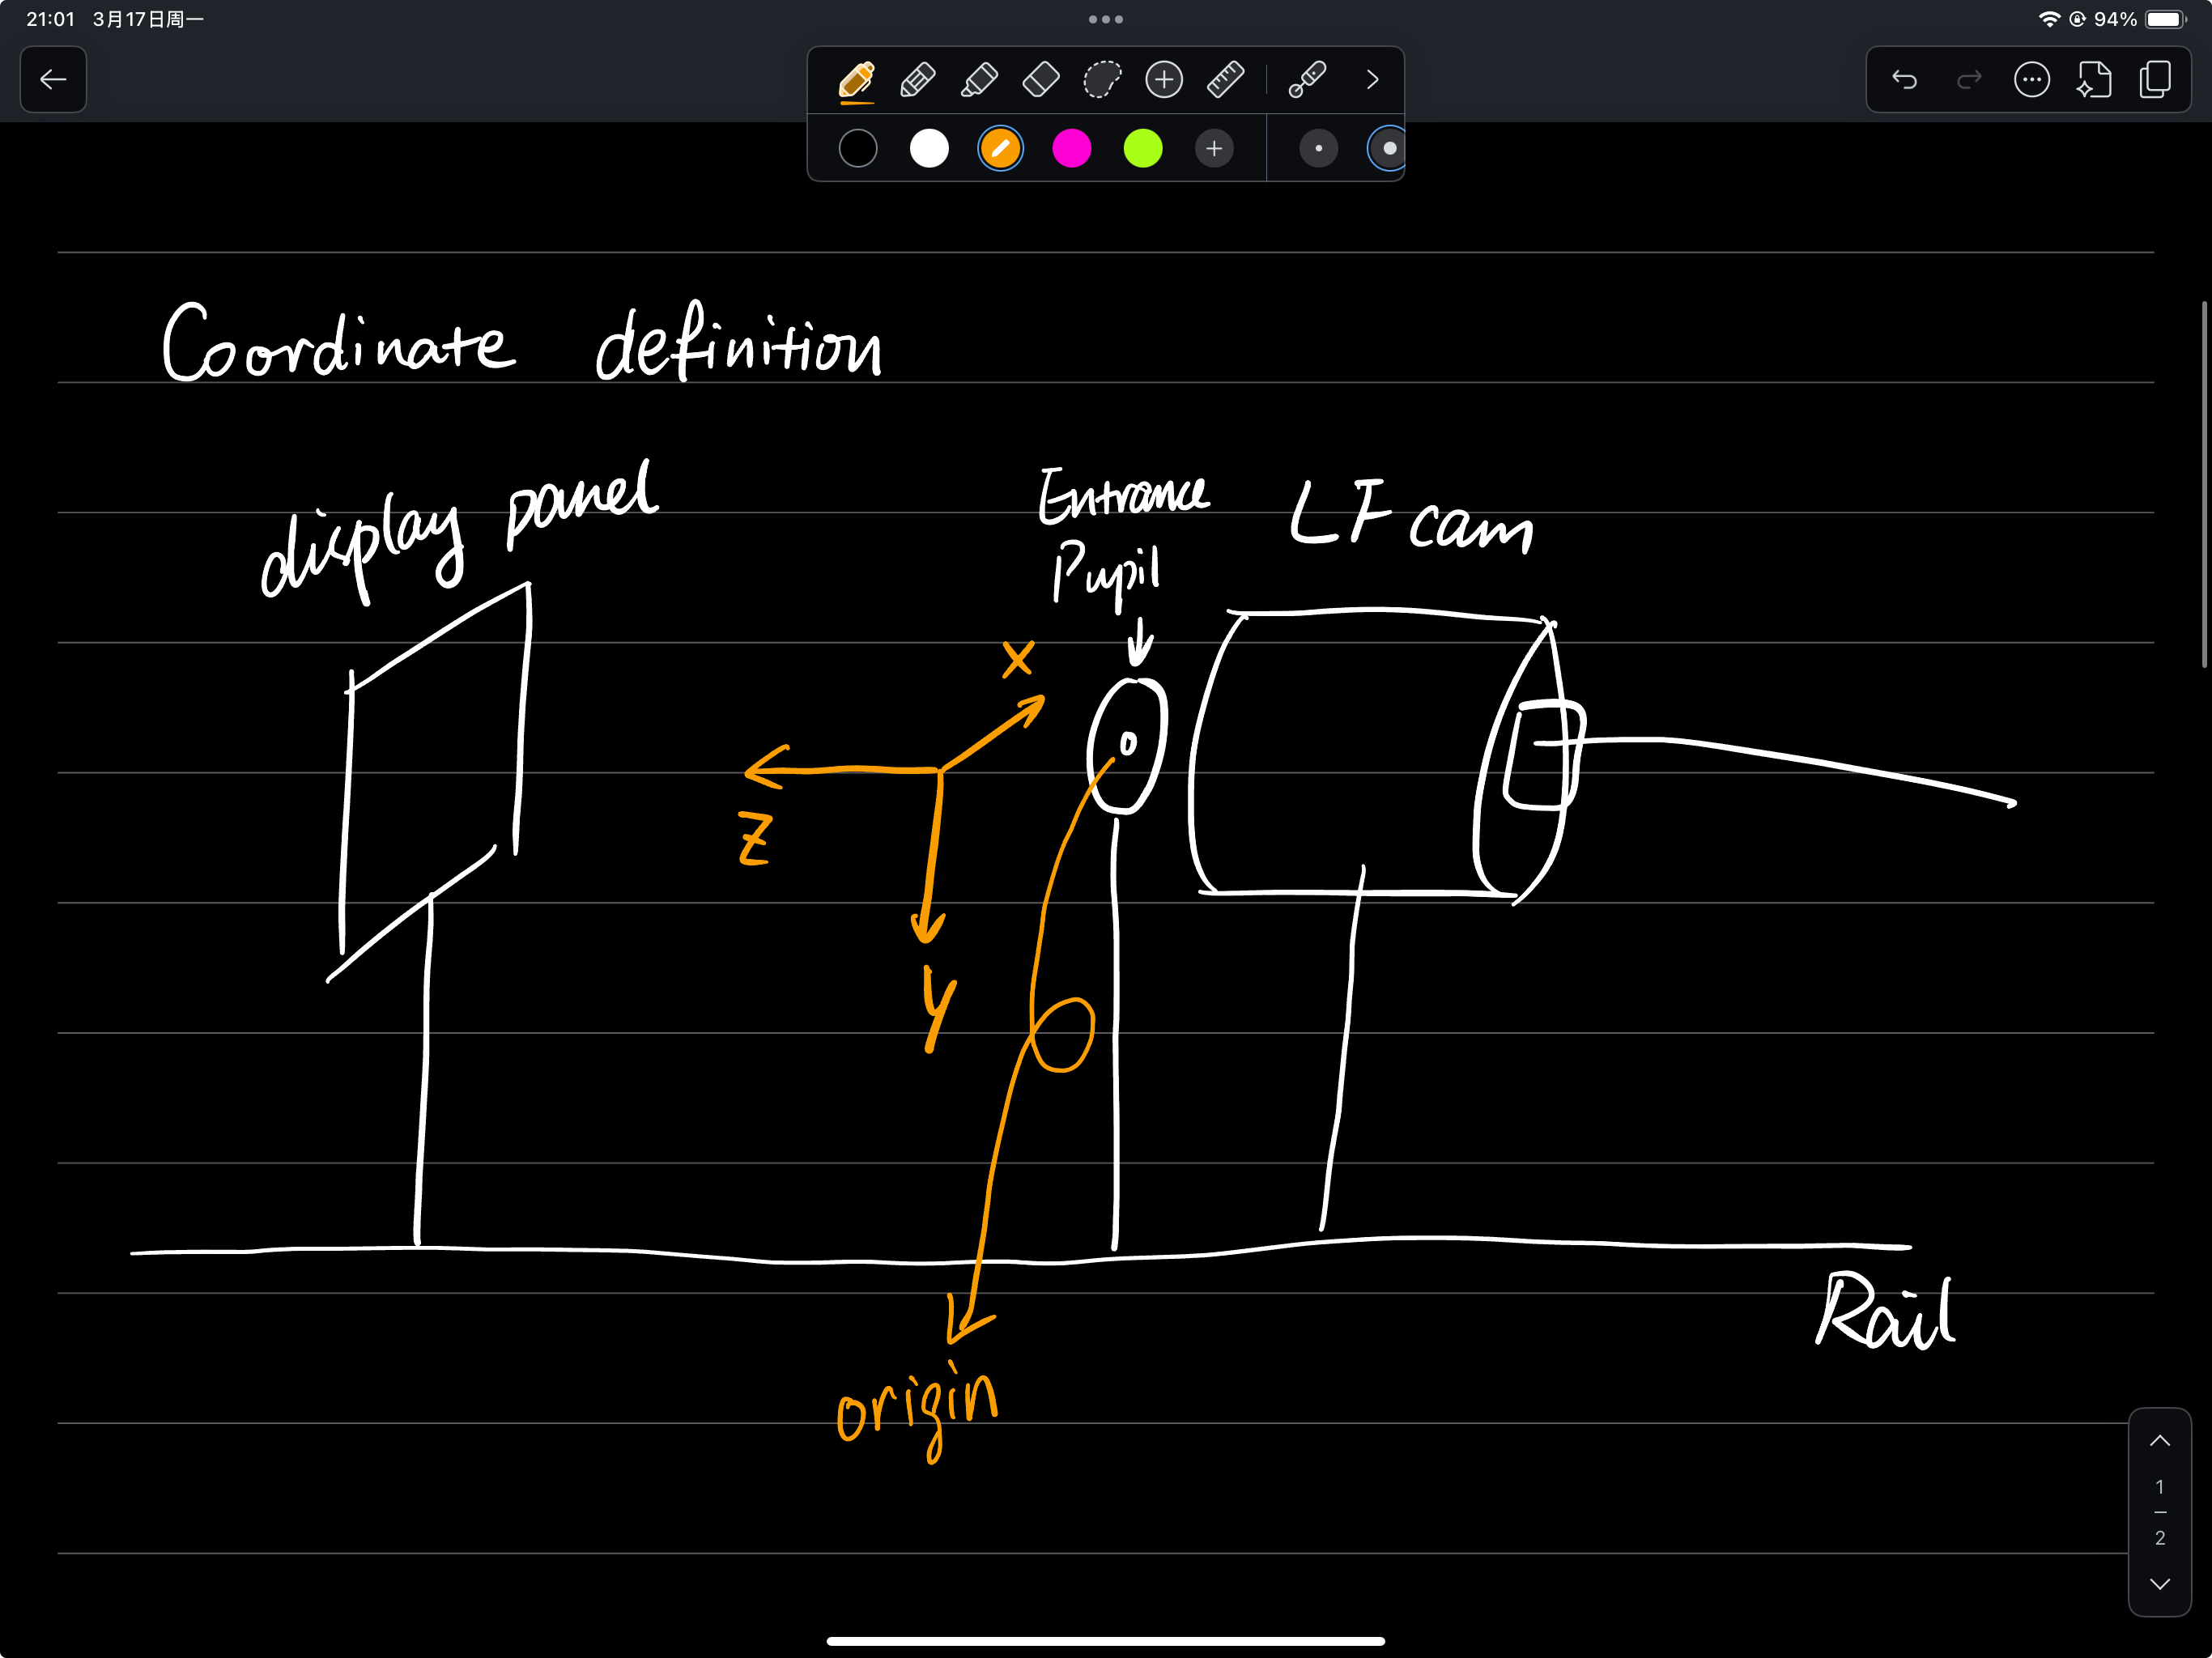 21:01 3月17日周一
94%
Coordinate definition
display panel
Entrance
Pupil
LF cam
x
z
y
origin
Rail
1
2